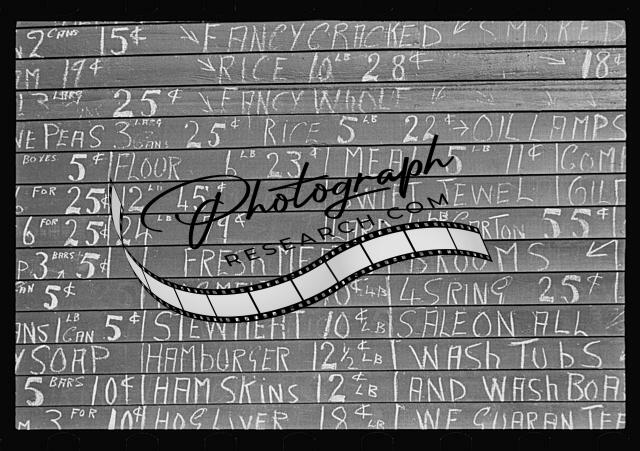 2 CANS 15¢ FANCY CRACKED SMOKED
M 19¢ RICE 10 LB 28¢ 18¢
3 LARG 25¢ FANCY WHOLE
PEAS 3 LARG CANS 25¢ RICE 5 LB 22¢ OIL LAMPS
BOXES 5¢ FLOUR 6 LB 23¢ MEAL 5 LB
FOR 25¢ 12 LB 45¢ SWIFT JEWEL
6 FOR 25¢ 24 LB CARTON 55¢
3 BARS 5¢ FRESH BROOMS
5¢ 4 LB 4 SRING 25¢
ANS 1 LB CAN 5¢ STEW MEAT 10¢ LB SALE ON ALL
SOAP HAMBURGER 12½¢ LB WASH TUBS
5 BARS 10¢ HAM SKINS 12¢ LB AND WASH BOA
M 3 FOR 10¢ HOG LIVER 18¢ LB WE GUARANTEE
Photograph
RESEARCH.COM